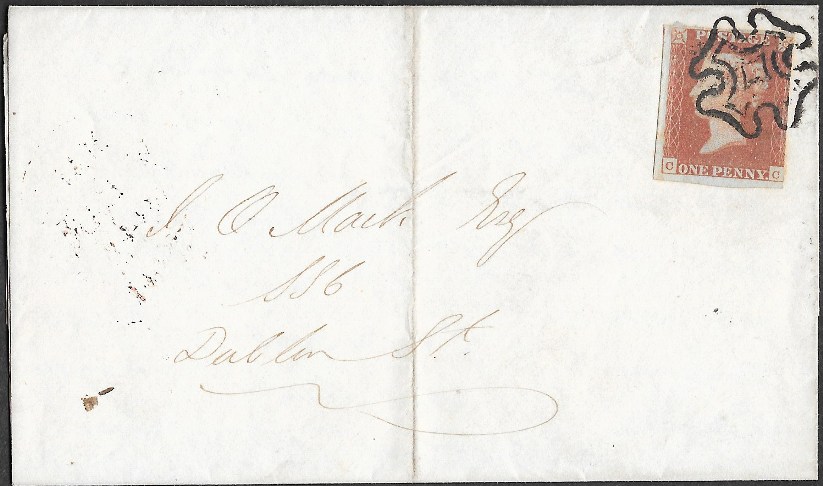 POSTAGE
C ONE PENNY. C
J. O Mack Esq
Dublin St.